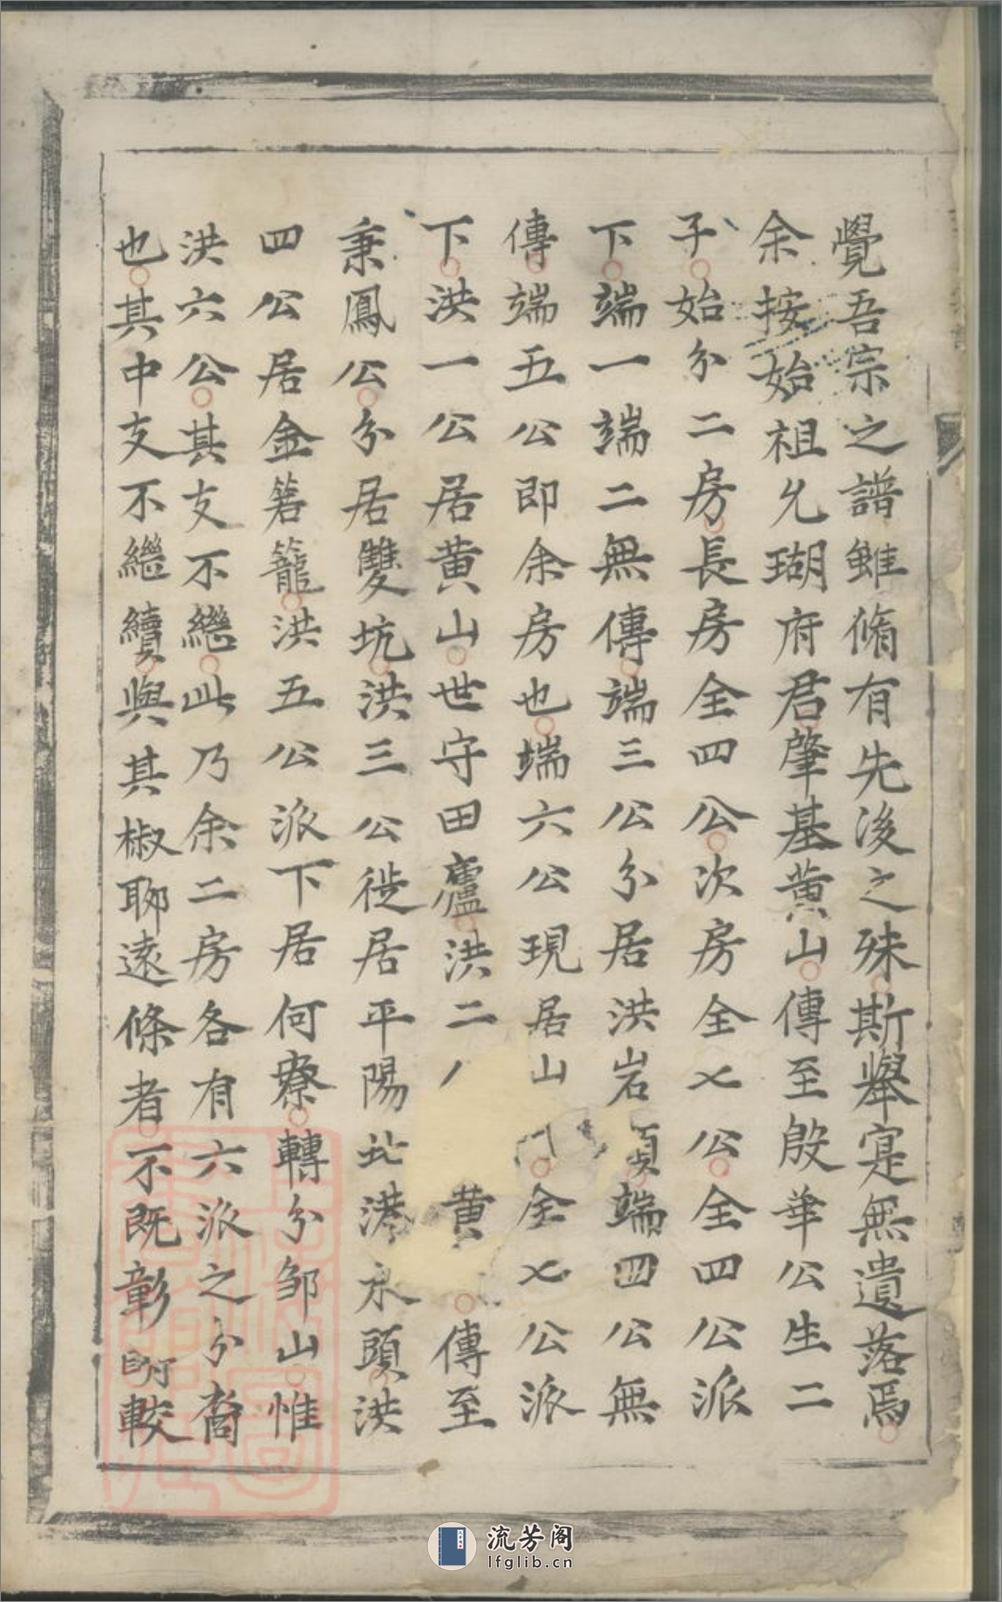 覺吾宗之譜雖脩有先後之殊斯舉寔無遺落焉
余按始祖允瑚府君肇基黄山傳至殷華公生二
子始分二房長房全四公次房全七公全四公派
下端一端二無傳端三公分居洪岩頭端四公無
傳端五公即余房也端六公現居山門全七公派
下洪一公居黄山世守田廬洪二 黄 傳至
秉鳳公分居雙坑洪三公徙居平陽北港水頭洪
四公居金箬籠洪五公派下居何寮轉分邹山惟
洪六公其支不繼此乃余二房各有六派之分裔
也其中支不繼續與其椒聊遠條者不既彰明較
流芳阁
lfglib.cn